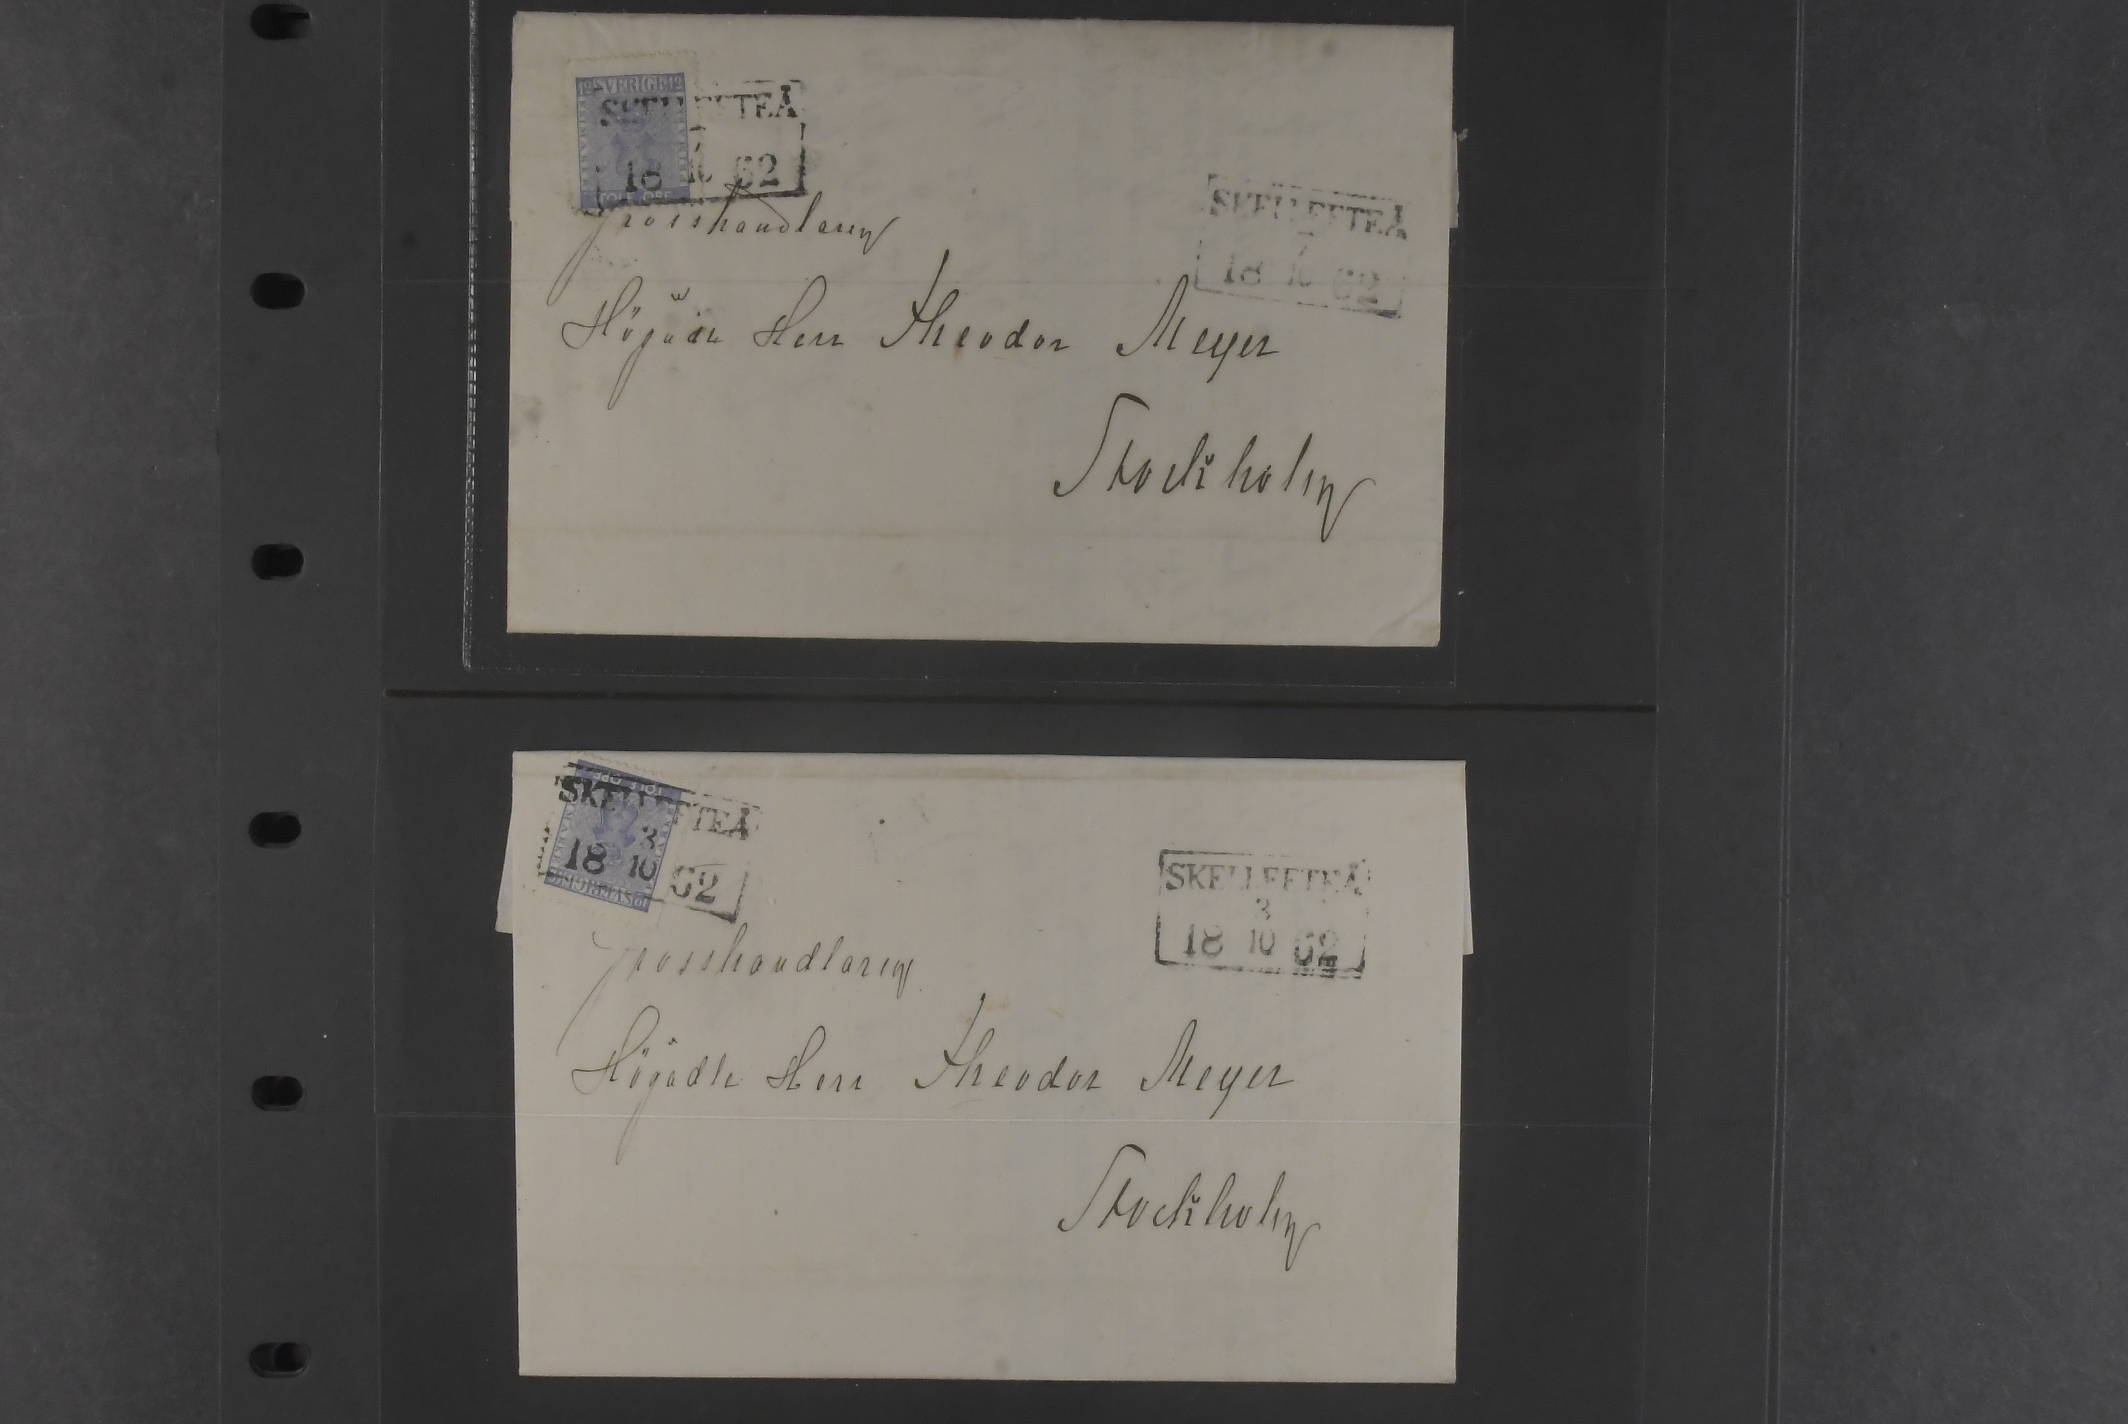 12 SVERIGE 12
FRIMÄRKE
TOLF ÖRE
SKELLEFTEÅ
7
18 10 62
SKELLEFTEÅ
7
18 10 62
Grosshandlaren
Högädle Herr Theodor Meyer
Stockholm
TOLF ÖRE
FRIMÄRKE
SVERIGE
SKELLEFTEÅ
3
18 10 62
SKELLEFTEÅ
3
18 10 62
Grosshandlaren
Högädle Herr Theodor Meyer
Stockholm